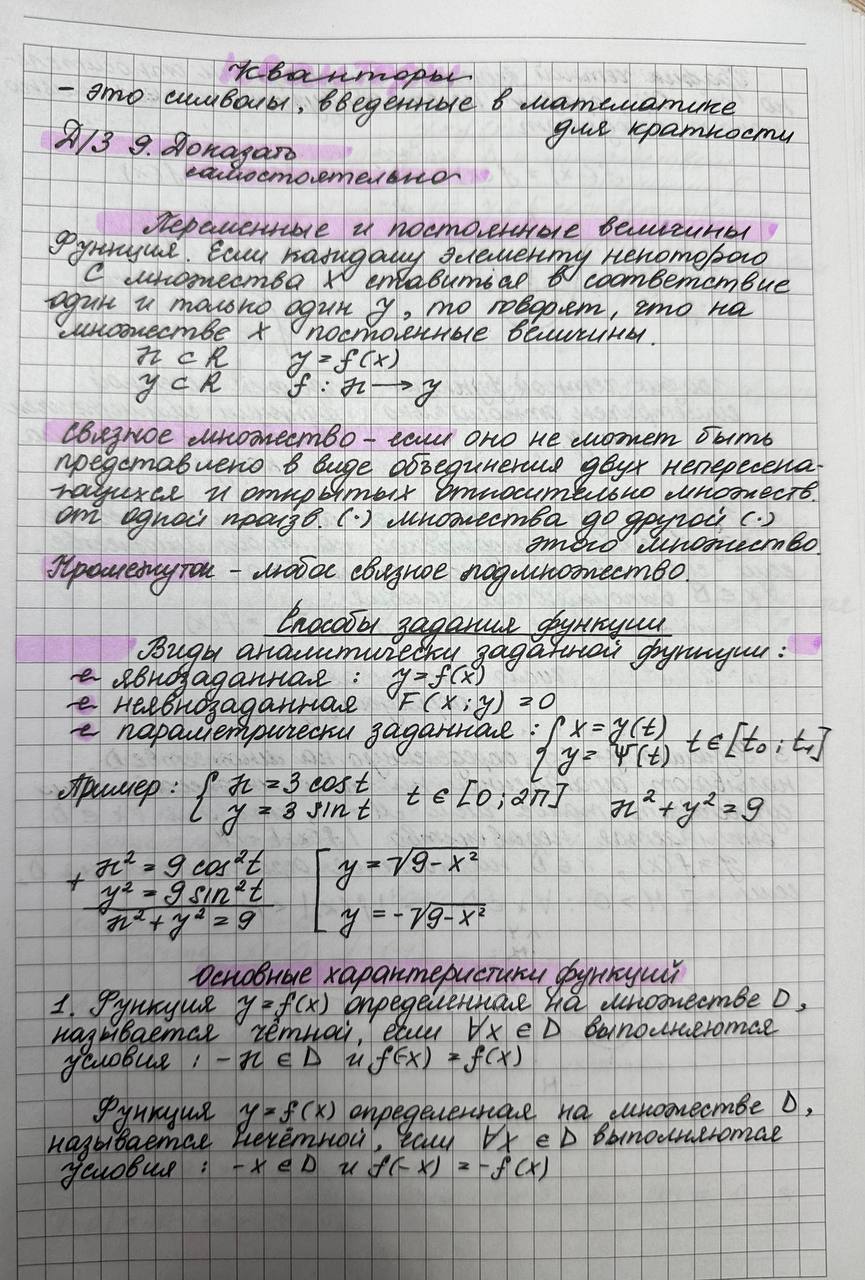 Кванторы
- это символы, введенные в математике
для кратности
Д/З 9. Доказать
самостоятельно
Переменные и постоянные величины
Функция. Если каждому элементу некоторого
С множества X ставиться в соответствие
один и только один y, то говорят, что на
множестве X постоянные величины.
x ⊂ R y = f(x)
y ⊂ R f : x → y
Связное множество - если оно не может быть
представлено в виде объединения двух непересека-
ющихся и открытых относительно множеств.
от одной произв. (·) множества до другой (·)
этого множество.
Промежуток - любое связное подмножество.
Способы задания функции
Виды аналитически заданной функции:
явнозаданная : y = f(x)
неявнозаданная F(x; y) = 0
параметрически заданная : { x = y(t)
y = Ψ(t) t ∈ [t₀; t₁]
Пример : { x = 3 cos t
y = 3 sin t t ∈ [0; 2π] x² + y² = 9
+ x² = 9 cos²t [ y = √9-x²
y² = 9 sin²t
x² + y² = 9 y = -√9-x²
Основные характеристики функций
1. Функция y = f(x) определенная на множестве D,
называется чётной, если ∀x ∈ D выполняются
условия : -x ∈ D и f(-x) = f(x)
Функция y = f(x) определенная на множестве D,
называется нечётной, если ∀x ∈ D выполняются
условия : -x ∈ D и f(-x) = -f(x)